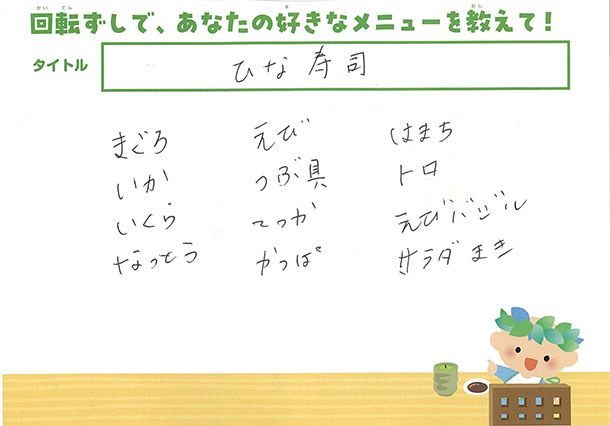 回転ずしで、あなたの好きなメニューを教えて！
タイトル
ひな寿司
まぐろ えび はまち
いか つぶ具 トロ
いくら てっか えびバジル
なっとう かっぱ サラダまき